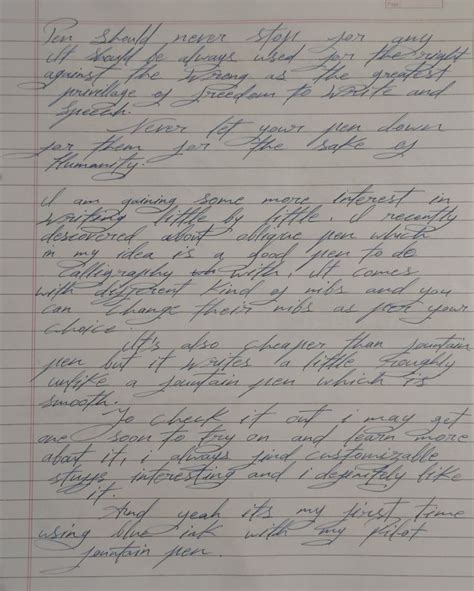 Pen should never stop for any
it should be always used for the right
against the wrong as the greatest
privellage of freedom to write and
speech.
Never let your pen down
for them for the sake of
Humanity.
I am gaining some more interest in
writing little by little. I recently
descovered about oblique pen which
in my idea is a good pen to do
Calligraphy with. It comes
with different kind of nibs and you
can change their nibs as per your
choice.
It's also cheaper than fountain
pen but it writes a little roughly
unlike a fountain pen which is
smooth.
To check it out i may get
one soon to try on and learn more
about it, i always find customizable
stuffs interesting and i definitely like
it.
And yeah its my first time
using blue ink with my Pilot
fountain pen.